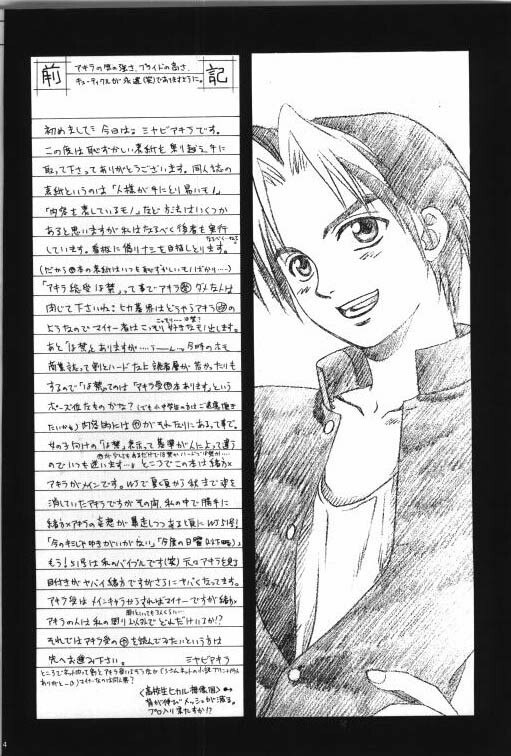 前記
アキラの質の強さ、プライドの高さ、
キューティクルが永遠(笑)でありますように。
初めまして今日はミヤビアキラです。
この度は恥ずかしい表紙を乗り越え、手に
取って下さってありがとうございます。同人誌の
表紙というのは「人様が手にとり易いモノ」
「内容を表しているモノ」など方法はいくつか
あると思いますが私はなるべく後者を実行
しています。看板に偽りナシを目指しとります。
(だから の本の表紙はいつも恥ずかしいモノばかり…)
「アキラ総受 は禁」って事でアキラ ダメな人は
閉じて下さいね。ヒカ碁界はどちらもアキラ の
ようなのでマイナー者はこっそり好きなモノ出します。
あと「は禁」とありますが……うーーん…今時のホモ
商業誌って割とハードだし読者層が若かったりも
するので「は禁」ってのは「アキラ受 本あります」という
ポーズ位なものかな?(でも小中学生の方はご遠慮頂き
たいかも)内容的には がそれなりにあるって事で。
女の子向けの「は禁」表示って基準が人によって違う
のでいつも迷います…。ところでこの本は緒方×
アキラがメインです。WJで夏く頃から秋まで姿を
消していたアキラですがその間、私の中で勝手に
緒方×アキラの妄想が暴走しつつある頃にWJ51号!
「今のキミじゃゆきがいかない」「今度の日曜(以下略)」
もう!51号は私のバイブルです(笑)元々アキラを見る
目付きがヤバイ緒方ですがさらにヤバくなってます。
アキラ受はメインキャラからすればマイナーですが緒方×
アキラの人は私の周り以外でどれだけいるか!?
それではアキラ受の を読んでみたいという方は
先へお進み下さい。 ミヤビアキラ
〈高校生ヒカル想像図〉
背が伸びメッシュが減る。
プロ入り果たすか!?
4